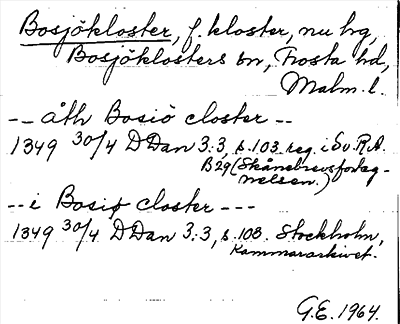 Bosjökloster, f. kloster, nu hg,
Bosjöklosters sn, Frosta hd,
Malm. l.
-- åth Bosiö closter --
1349 30/4 DDan 3:3, s. 103 reg. i Sv. R.A.
B 29 (Skånebrevsforteg-
nelsen.)
-- i Bosiø closter ---
1349 30/4 DDan 3:3, s. 103. Stockholm,
Kammararkivet.
G.E. 1964.